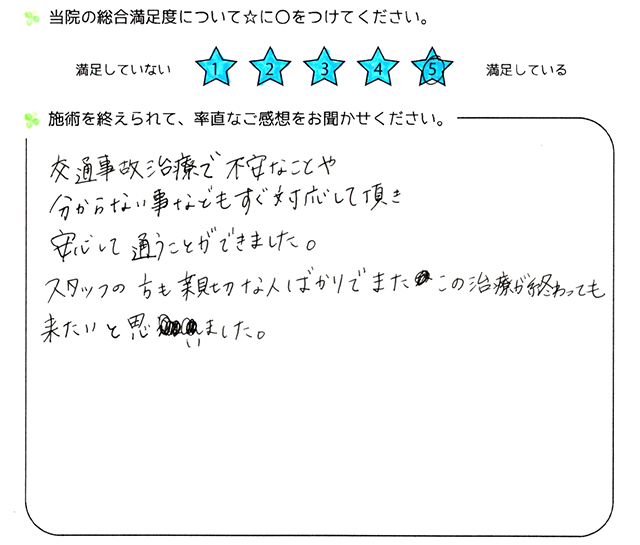 当院の総合満足度について☆に○をつけてください。
満足していない 1 2 3 4 5 満足している
施術を終えられて、率直なご感想をお聞かせください。
交通事故治療で不安なことや
分からない事などもすぐ対応して頂き
安心して通うことができました。
スタッフの方も親切な人ばかりでまたこの治療が終わっても
来たいと思いました。